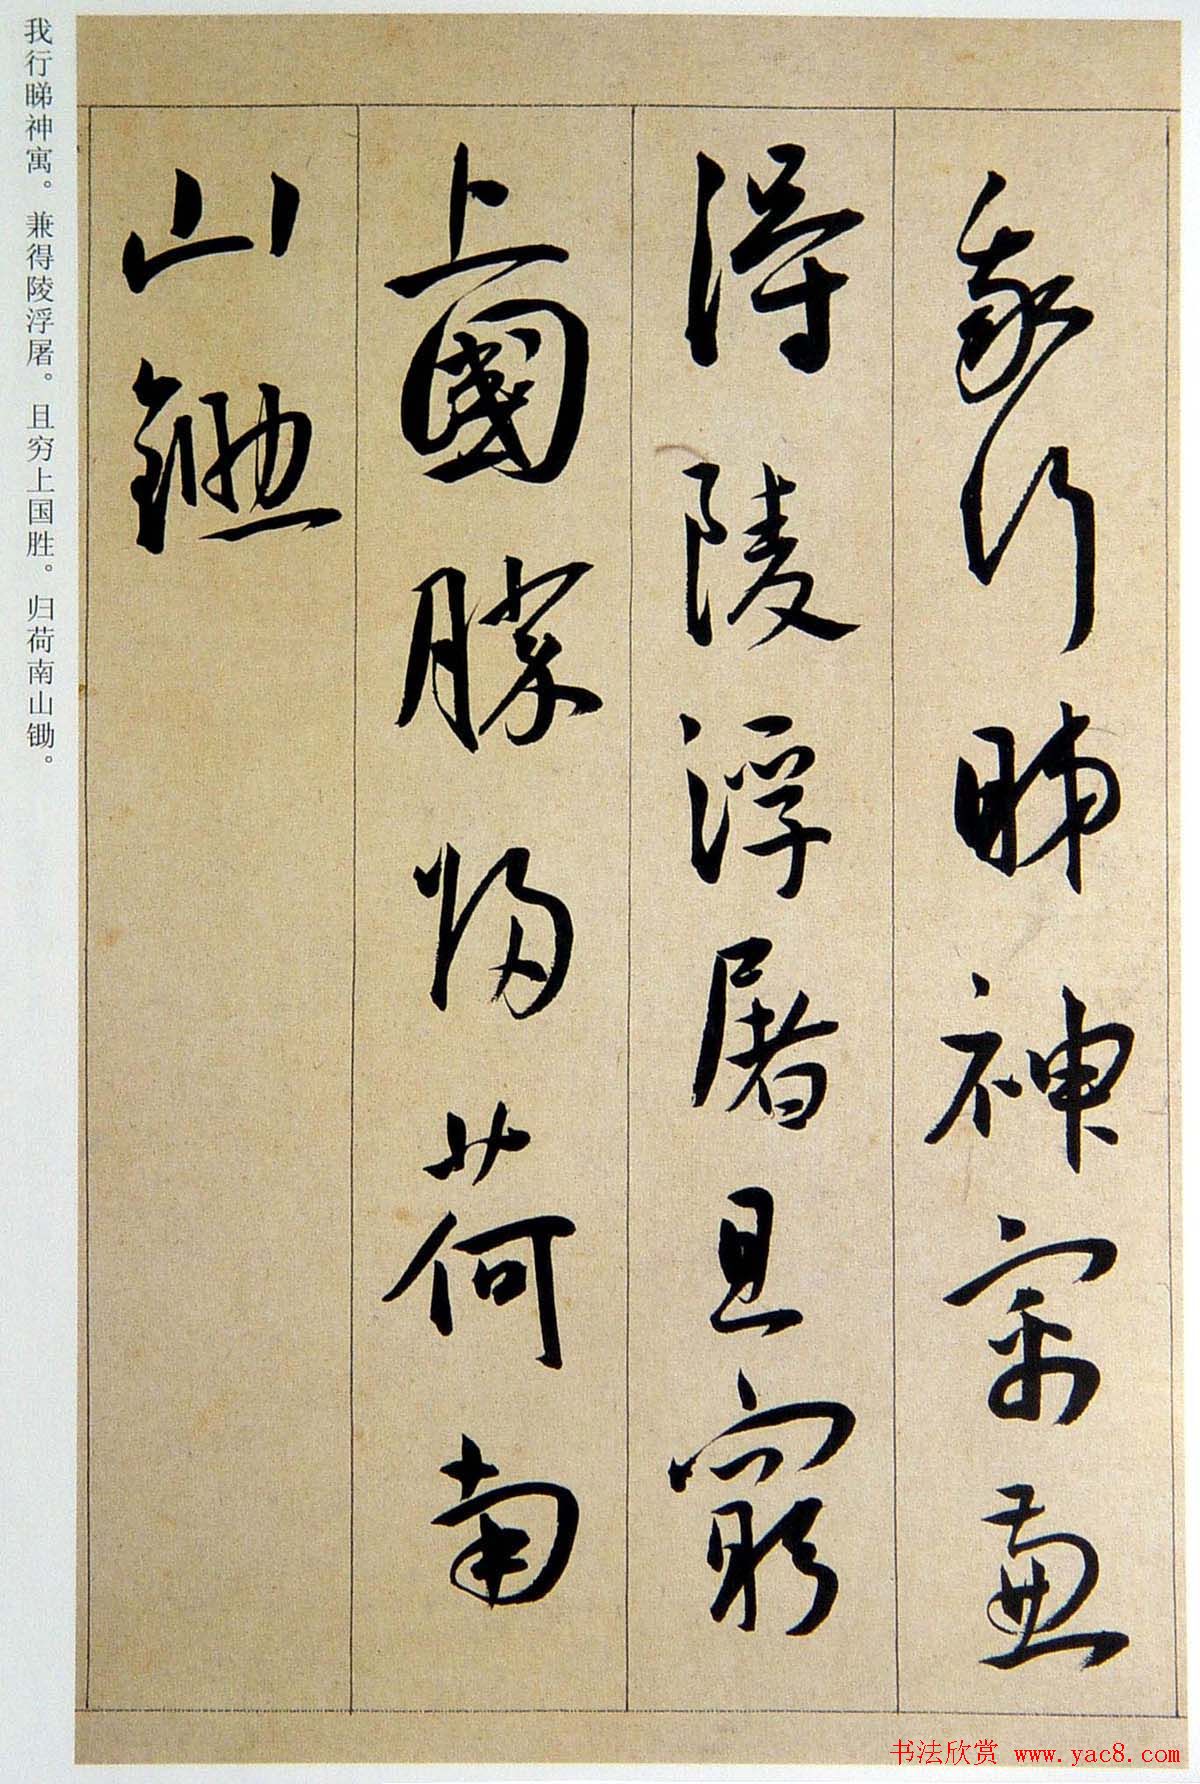 我行睇神寓兼
得陵浮屠且窮
上國勝歸荷南
山鋤
我行睇神寓。兼得陵浮屠。且穷上国胜。归荷南山锄。
书法欣赏 www.yac8.com